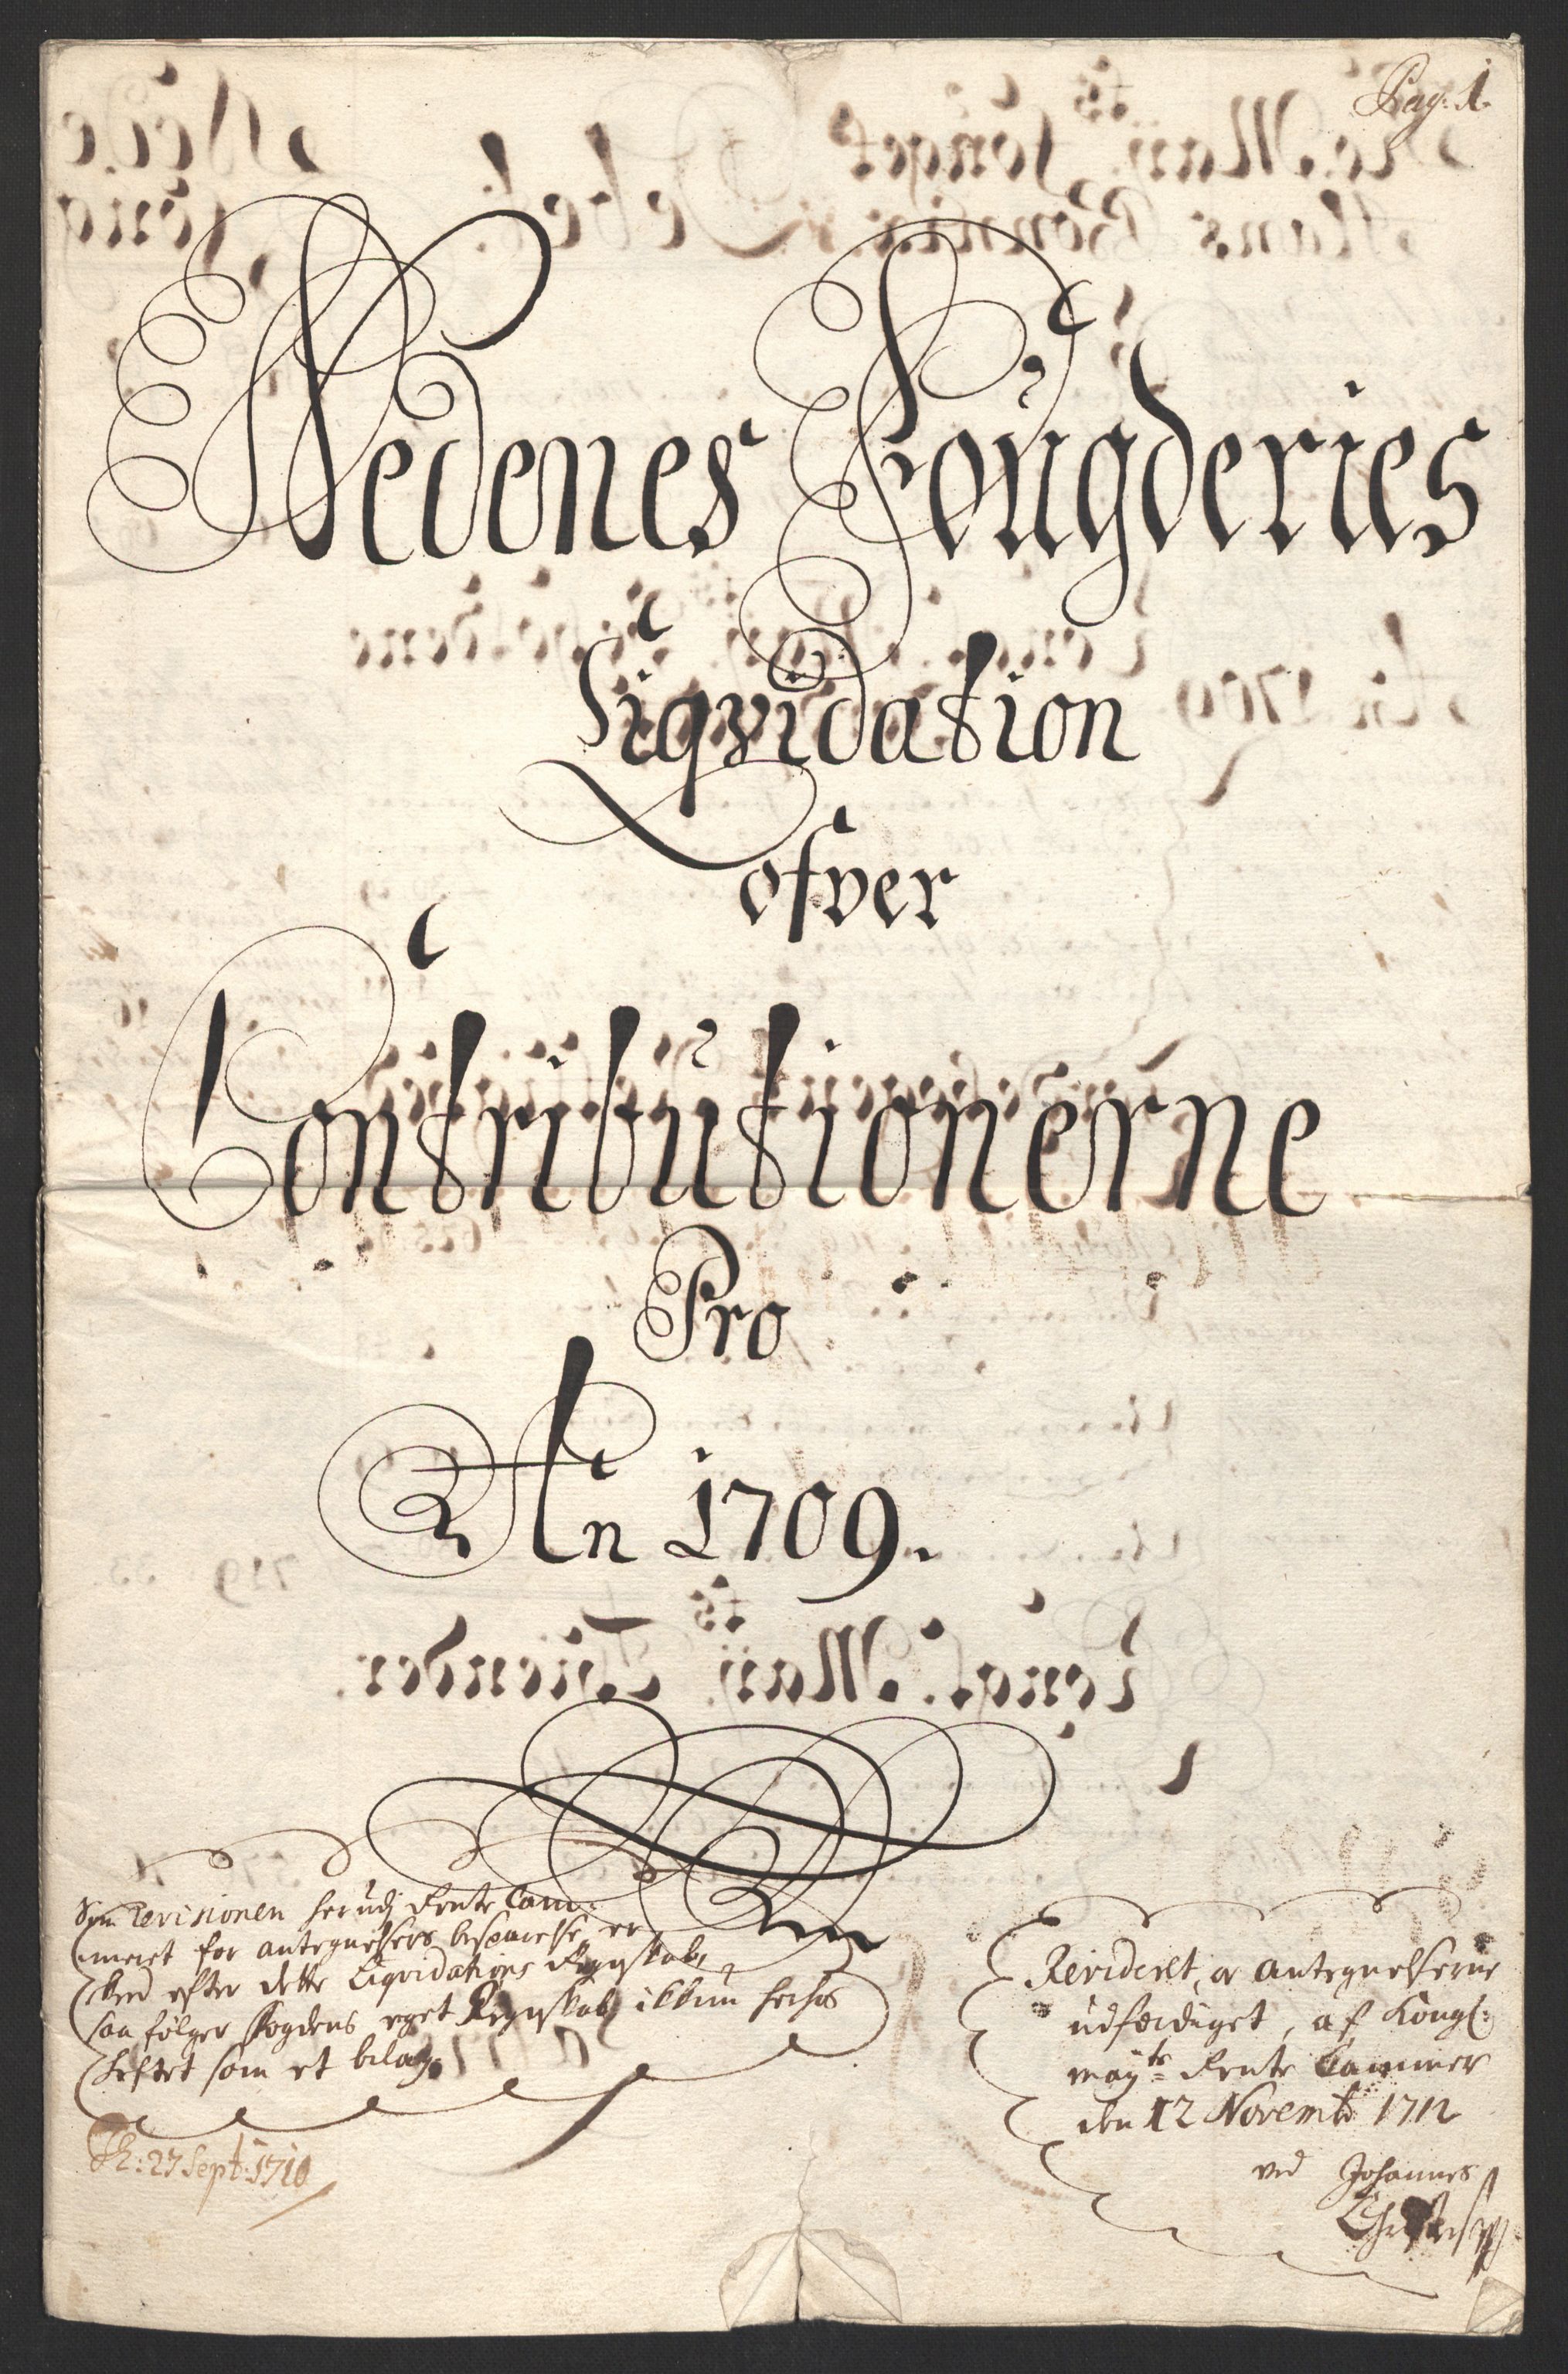 Pag: 1.
Nedenes Fougderies
Liqvidation
ofver
Contributionerne
Pro
An 1709.
revisionen herudj Rente Cam-
meret for antegnelsers besparelse er
sked efter dette Liqvidations Regnskab,
saa følger fogdens eget Regnskab ikkun herhos
heftet som et bilag.
27 Sept: 1710
Revideret, og antegnelserne
udferdiget, af Kongl:
mayts Rente Cammer
den 12 Novemb 1712
ved Johannes